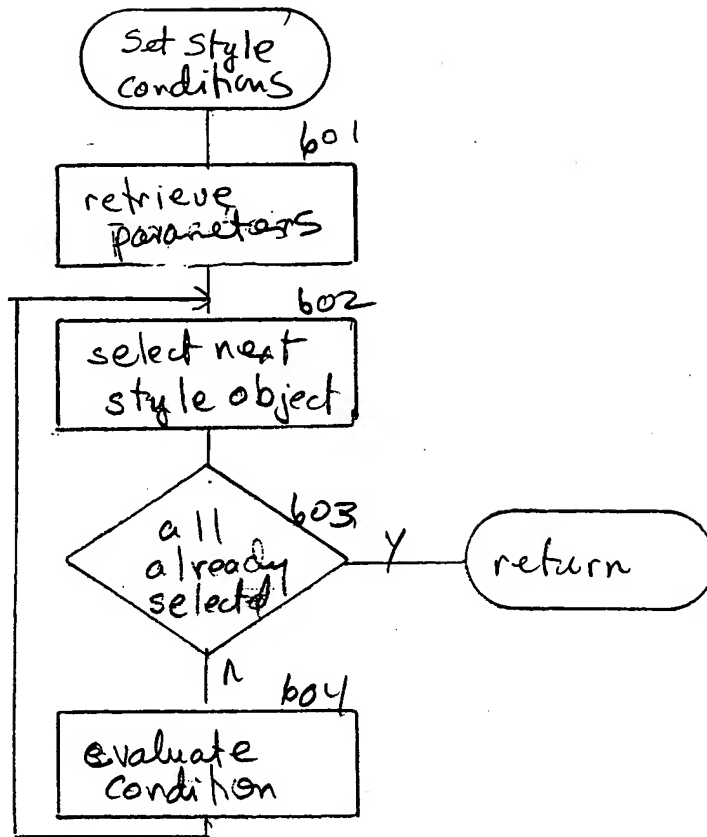 Set style
conditions
601
retrieve
parameters
602
select next
style object
603
all
already
selected
Y
return
n
604
evaluate
condition